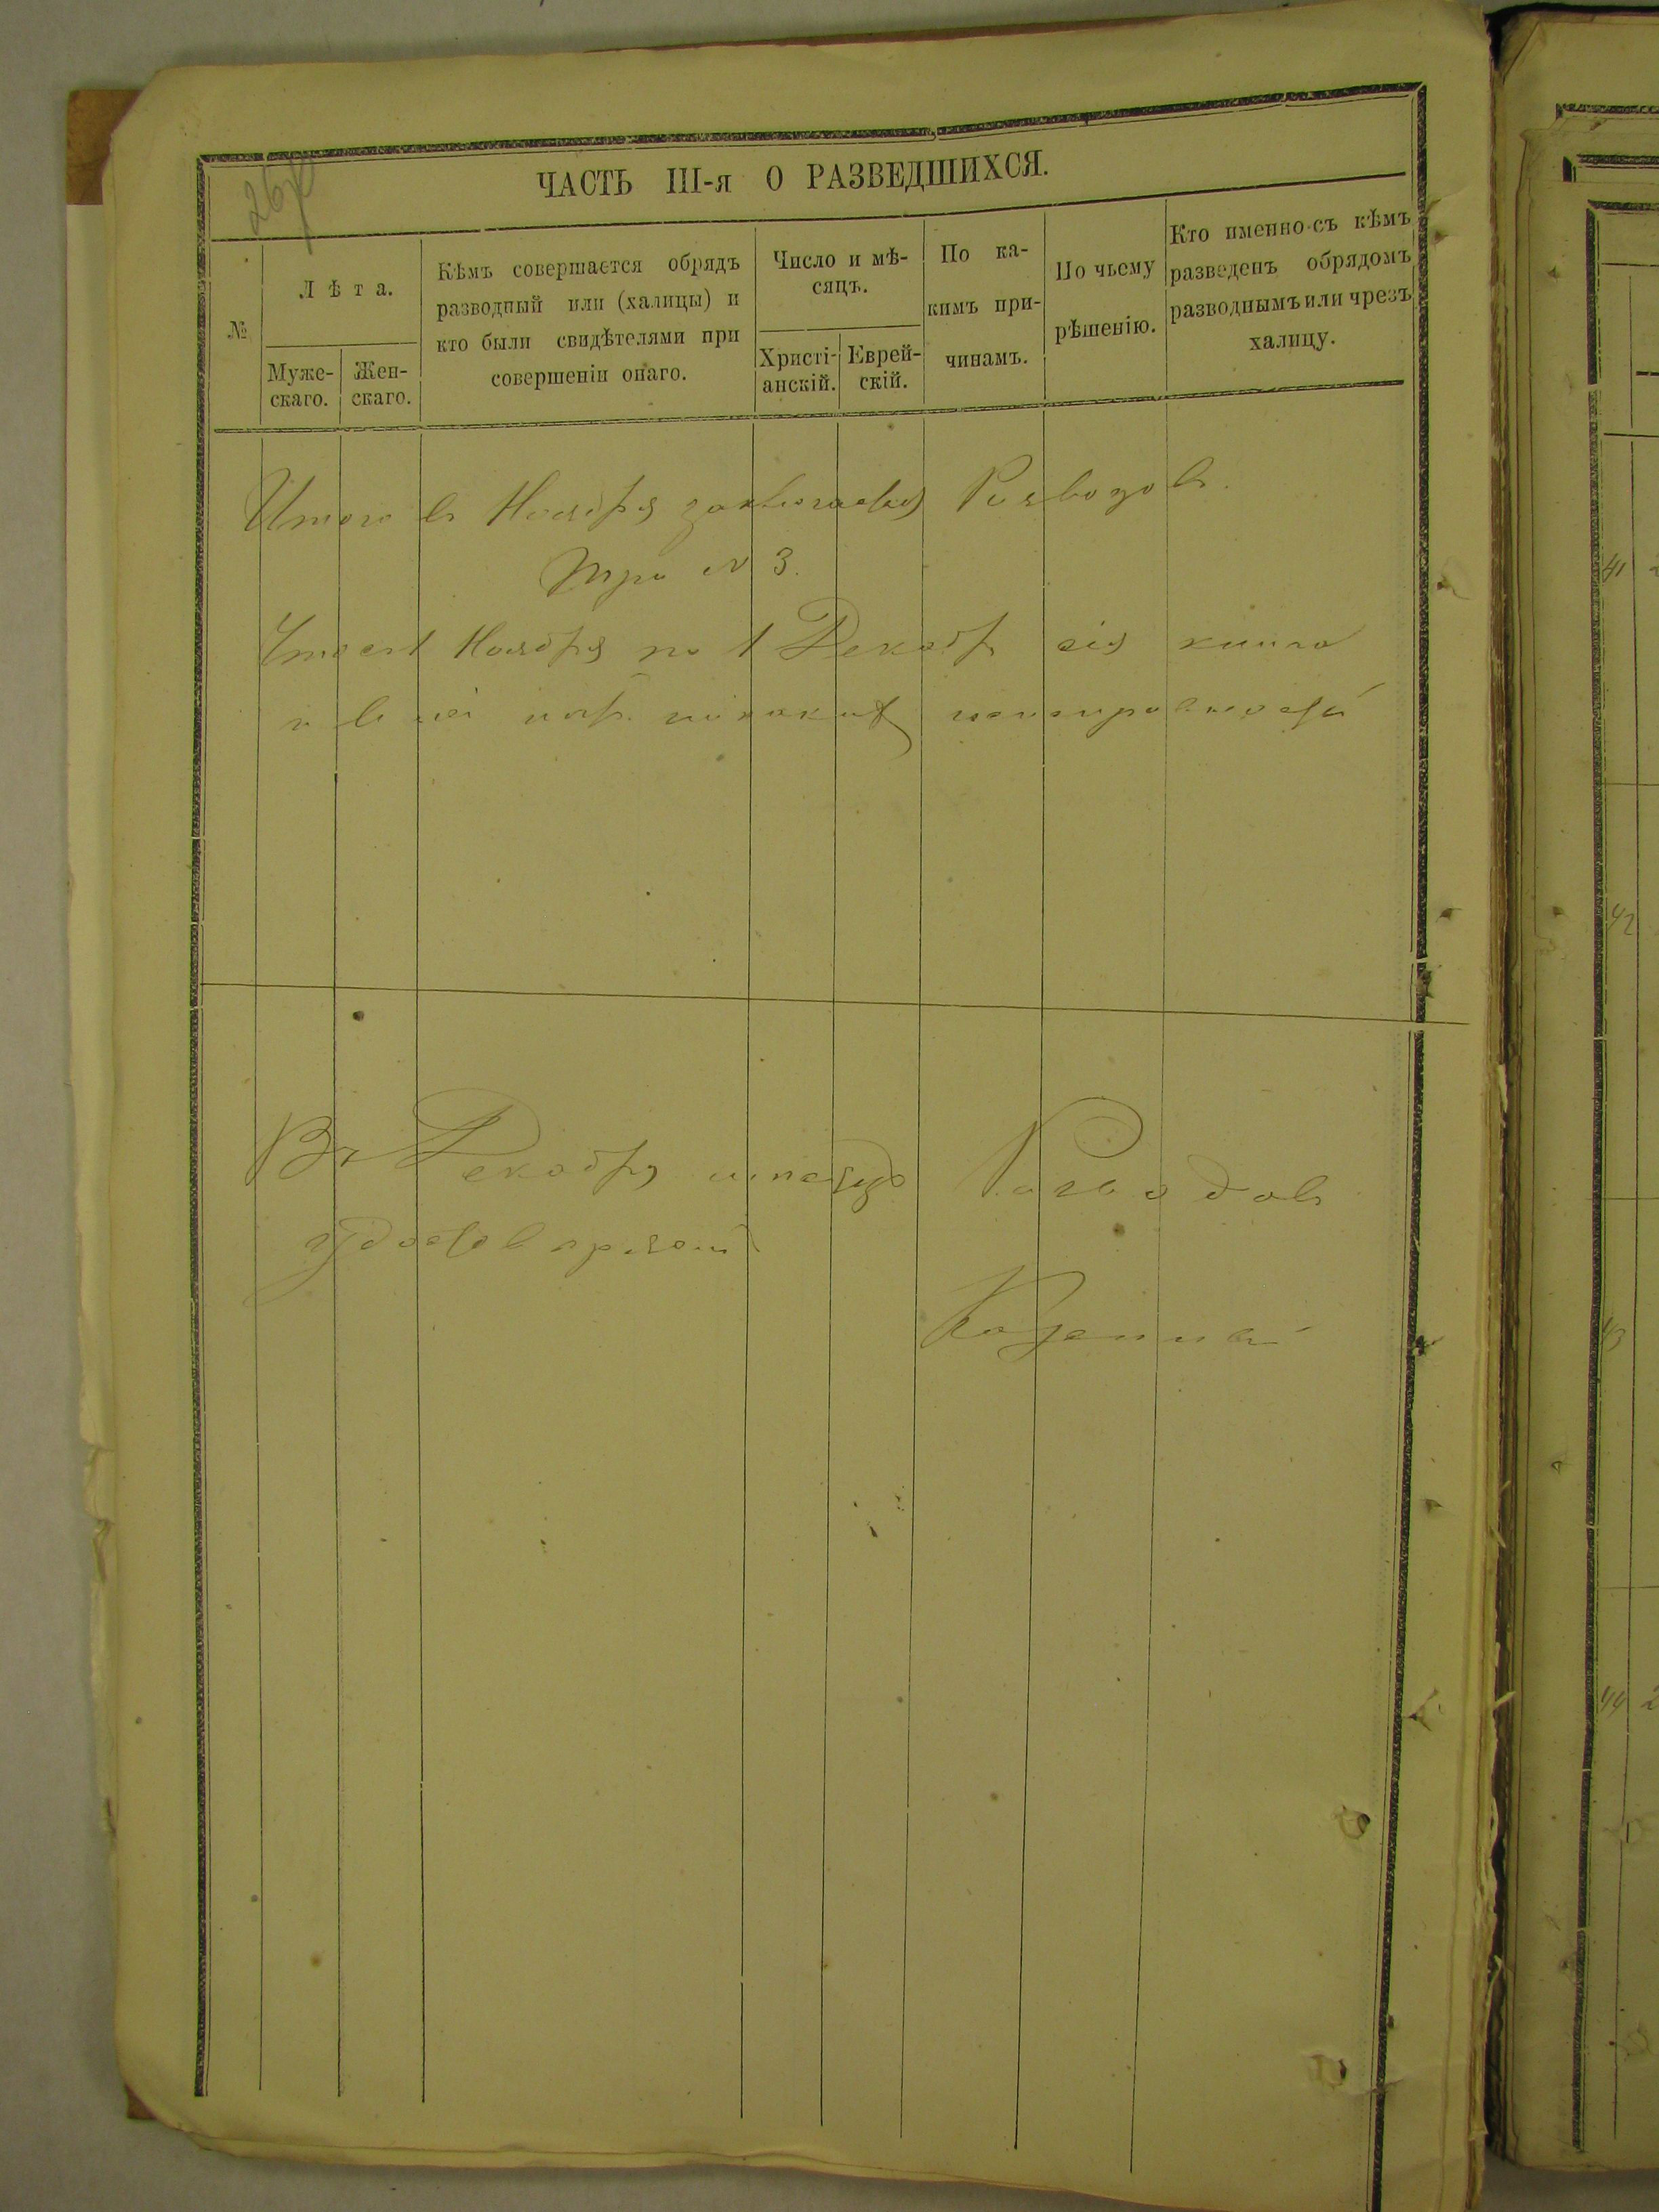 ЧАСТЬ III-я О РАЗВЕДШИХСЯ.
№
Лѣта.
Муже-
скаго.
Жен-
скаго.
Кѣмъ совершается обрядъ
разводный или (халицы) и
кто были свидѣтелями при
совершеніи онаго.
Число и мѣ-
сяцъ.
Христі-
анскій.
Еврей-
скій.
По ка-
кимъ при-
чинамъ.
По чьему
рѣшенію.
Кто именно съ кѣмъ
разведенъ обрядомъ
разводнымъ или чрезъ
халицу.
Итого въ Ноябрѣ заключается Разводовъ.
Три N 3.
Что съ 1 Ноября по 1 Декабр сія книга
никакихъ неисправностей
Въ Декабрѣ мѣсяцѣ Разводовъ
Казенный
41
42
43
44